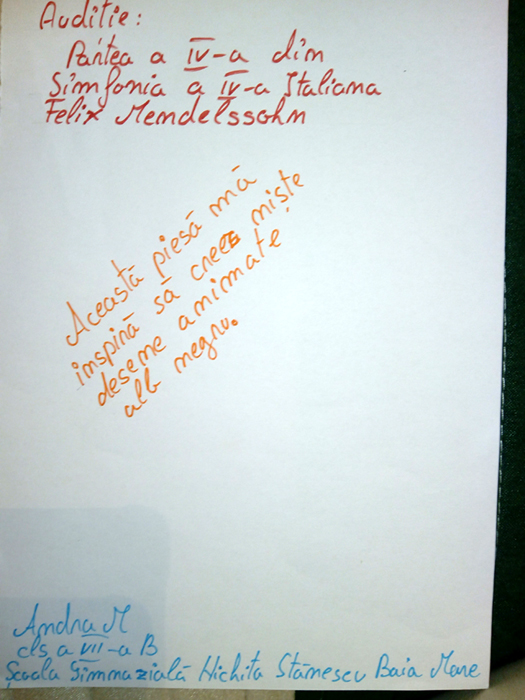 Auditie:
Partea a IV-a din
Simfonia a IV-a Italiana
Felix Mendelssohn
Această piesă mă
inspiră să creez niște
desene animate
alb negru.
Andra M
cls a VII-a B
Școala Gimnazială Nichita Stănescu Baia Mare